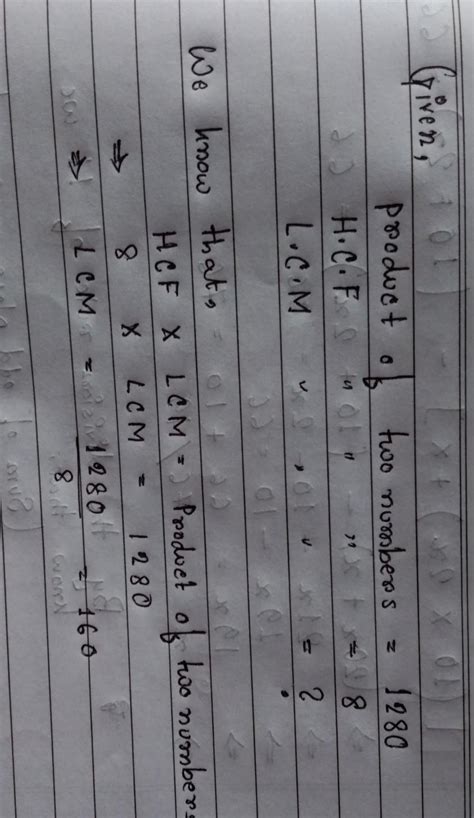 Given,
Product of two numbers = 1280
H.C.F " " " = 8
L.C.M " , " = ?
We know that,
HCF X LCM = Product of two numbers
⇒ 8 X LCM = 1280
⇒ LCM = 1280/8 = 160